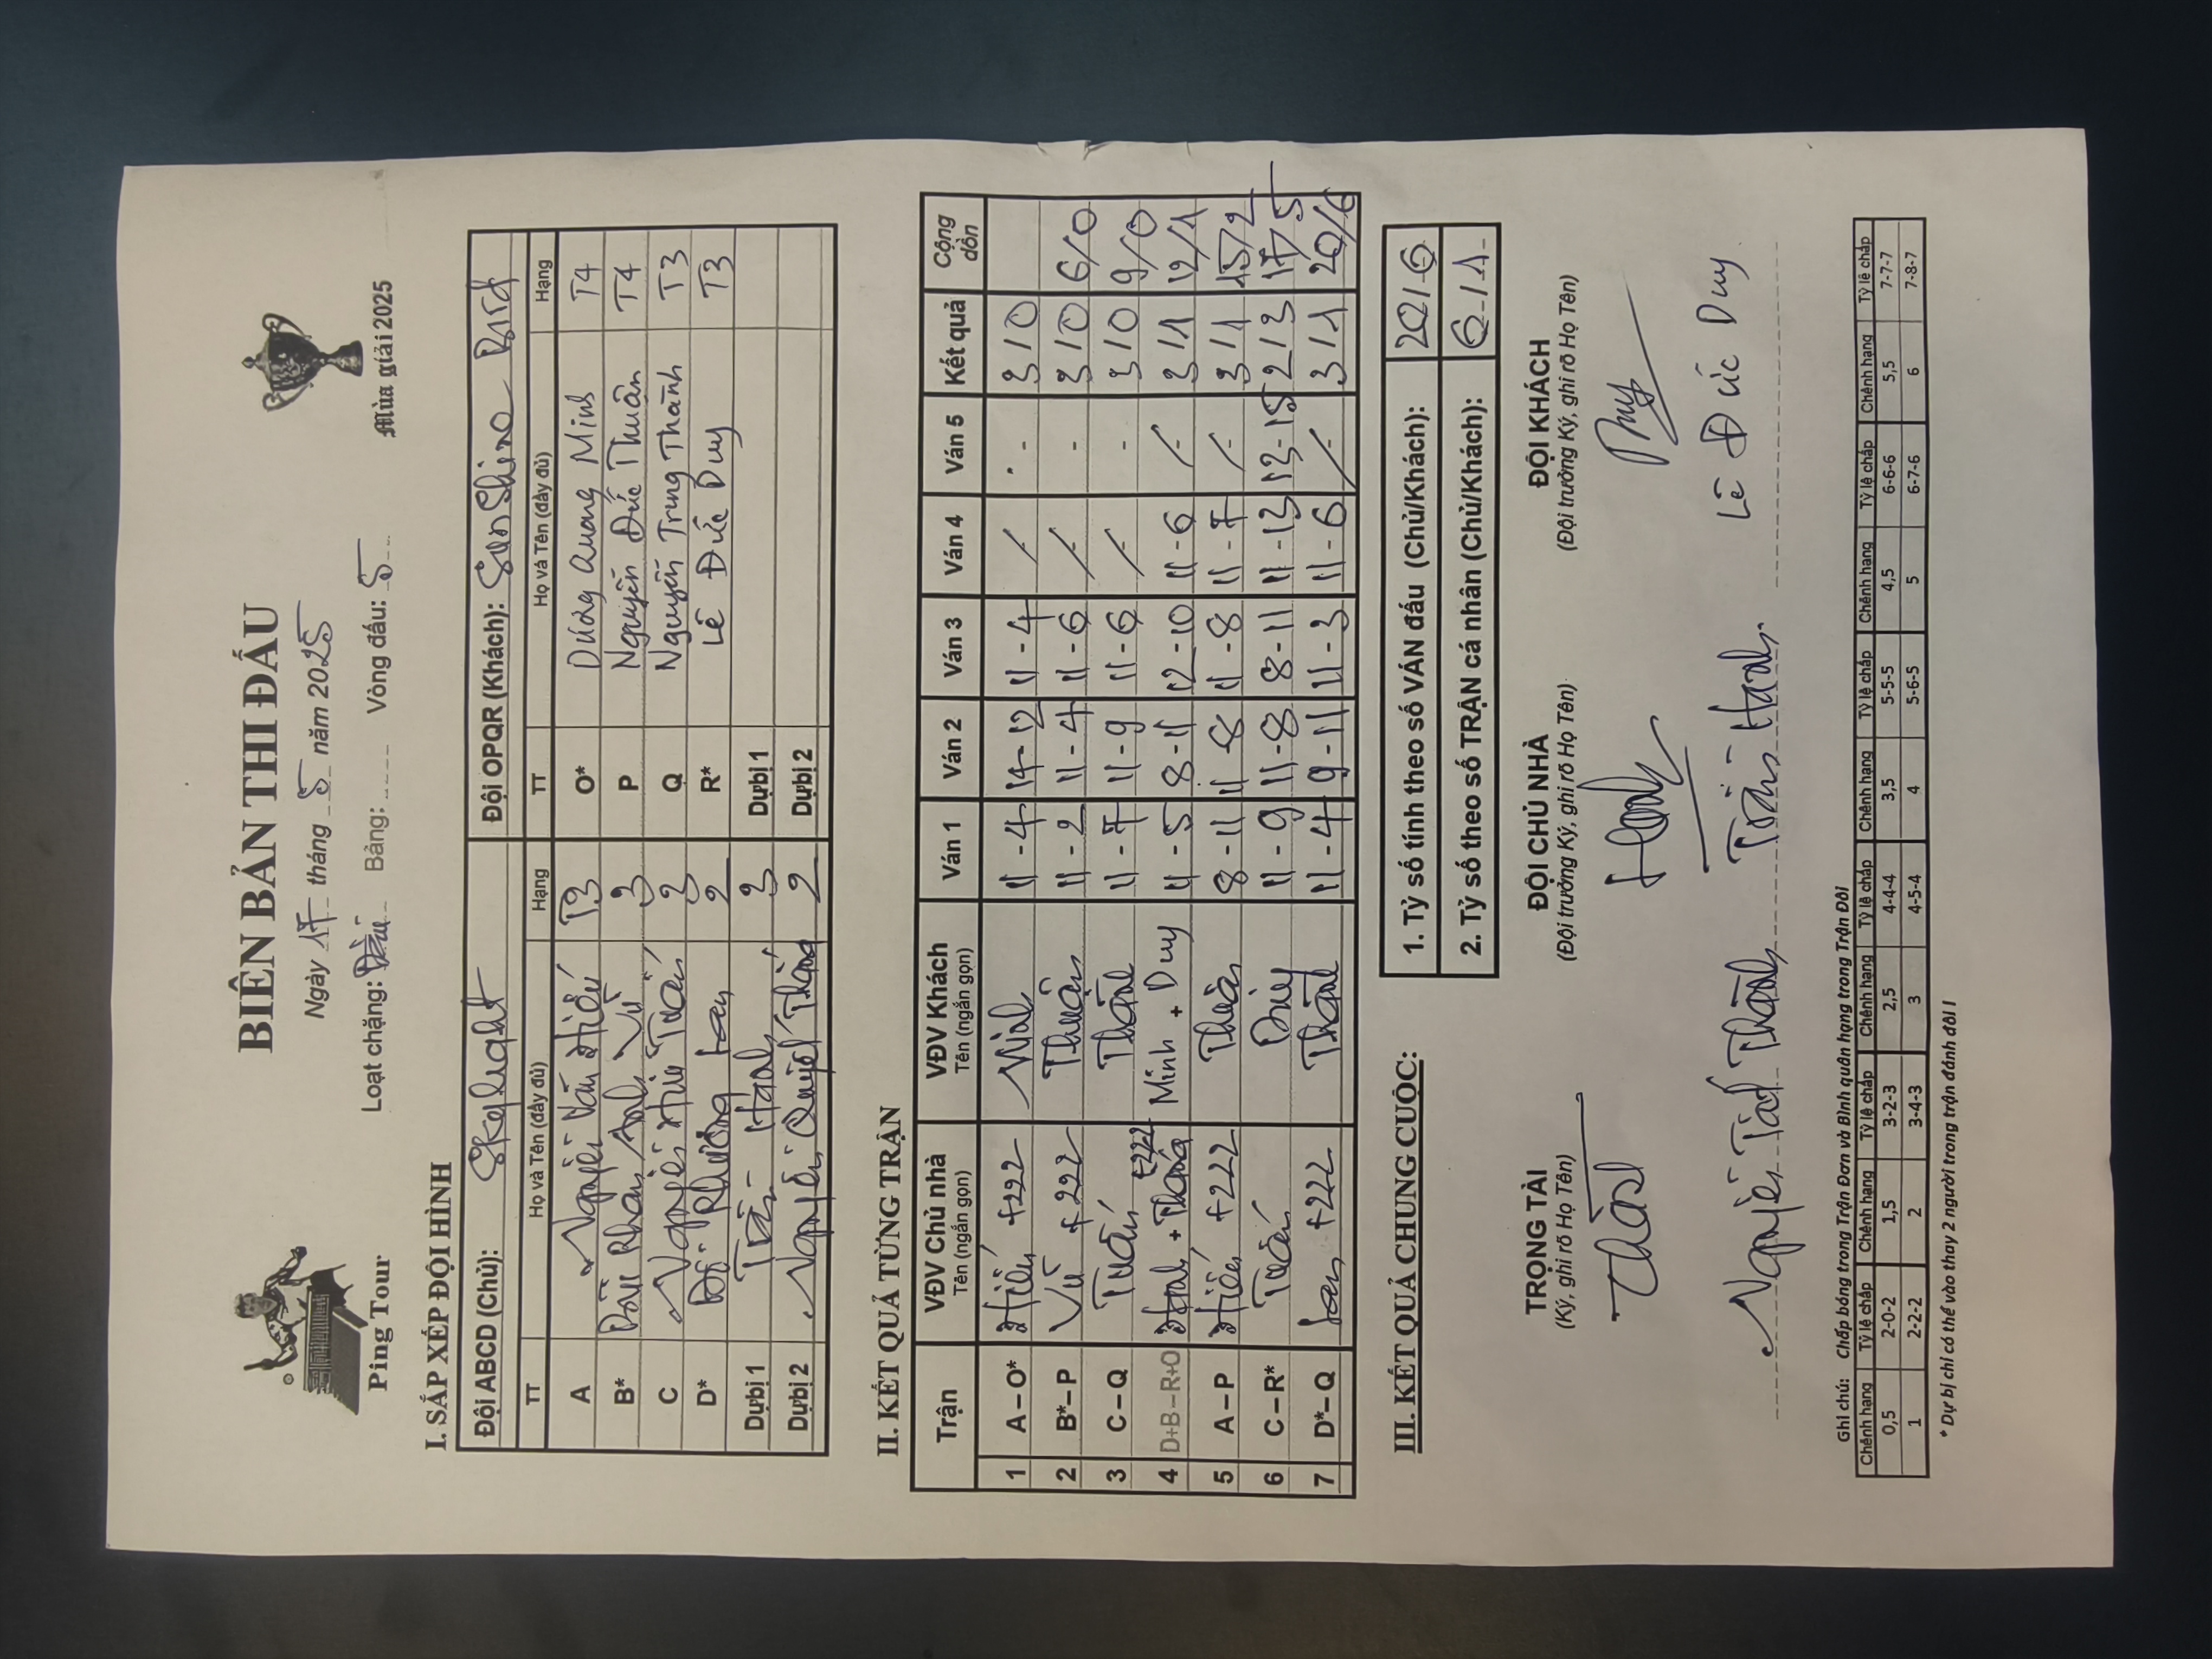 Ping Tour
BIÊN BẢN THI ĐẤU
Ngày 17 tháng 5 năm 2025
Loạt chặng: Bảng: Vòng đấu: 5
Mùa giải 2025
I. SẮP XẾP ĐỘI HÌNH
Đội ABCD (Chủ): Skylight Đội OPQR (Khách): SunShine
TT Họ và Tên (đầy đủ) Hạng TT Họ và Tên (đầy đủ) Hạng
A Nguyễn Văn Hiếu T3 O* Dương Quang Minh T4
B* Phan Anh Vũ 3 P Nguyễn Đức Thuận T4
C Nguyễn Tuấn 3 Q Nguyễn Trung Thành T3
D* Phương Lan 2 R* Lê Đức Duy T3
Dự bị 1 Trần Hạnh 3 Dự bị 1
Dự bị 2 Nguyễn Quyết Thắng 2 Dự bị 2
II. KẾT QUẢ TỪNG TRẬN
Trận VĐV Chủ nhà Tên (ngắn gọn) VĐV Khách Tên (ngắn gọn) Ván 1 Ván 2 Ván 3 Ván 4 Ván 5 Kết quả Cộng dồn
1 A – O* Hiếu +222 Minh 11 - 4 14 - 12 11 - 4 / - 3 / 0
2 B* – P Vũ +222 Thuận 11 - 2 11 - 4 11 - 6 / - 3 / 0 6/0
3 C – Q Tuấn Thành 11 - 7 11 - 9 11 - 6 / - 3 / 0 9/0
4 D+B – R+O Hạnh + Thắng +222 Minh + Duy 11 - 5 8 - 11 12 - 10 11 - 6 / 3 / 1 12/1
5 A – P Hiếu +222 Thuận 8 - 11 11 - 8 11 - 8 11 - 7 / 3 / 1 15/2
6 C – R* Tuấn Duy 11 - 9 11 - 8 8 - 11 11 - 13 13 - 15 2 / 3 17/5
7 D* – Q Lan +222 Thành 11 - 4 9 - 11 11 - 3 11 - 6 / 3 / 1 20/6
III. KẾT QUẢ CHUNG CUỘC:
1. Tỷ số tính theo số VÁN đấu (Chủ/Khách): 20/6
2. Tỷ số theo số TRẬN cá nhân (Chủ/Khách): 6/1
TRỌNG TÀI ĐỘI CHỦ NHÀ ĐỘI KHÁCH
(Ký, ghi rõ Họ Tên) (Đội trưởng Ký, ghi rõ Họ Tên) (Đội trưởng Ký, ghi rõ Họ Tên)
Nguyễn Tất Thành Trần Hạnh Lê Đức Duy
Ghi chú: Chấp bóng trong Trận Đơn và Bình quân hạng trong Trận Đôi
Chênh hạng Tỷ lệ chấp Chênh hạng Tỷ lệ chấp Chênh hạng Tỷ lệ chấp Chênh hạng Tỷ lệ chấp Chênh hạng Tỷ lệ chấp Chênh hạng Tỷ lệ chấp
0,5 2-0-2 1,5 3-2-3 2,5 4-4-4 3,5 5-5-5 4,5 6-6-6 5,5 7-7-7
1 2-2-2 2 3-4-3 3 4-5-4 4 5-6-5 5 6-7-6 6 7-8-7
* Dự bị chỉ có thể vào thay 2 người trong trận đánh đôi !